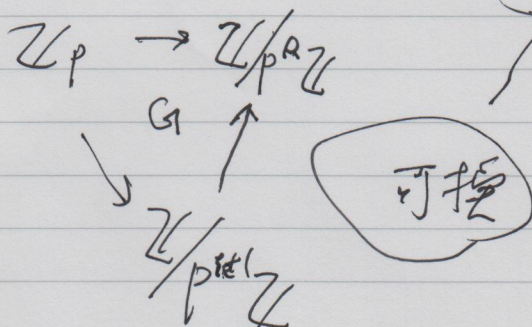 ℤₚ → ℤ/pᵏℤ
G
可換
ℤ/pᵏ⁺¹ℤ